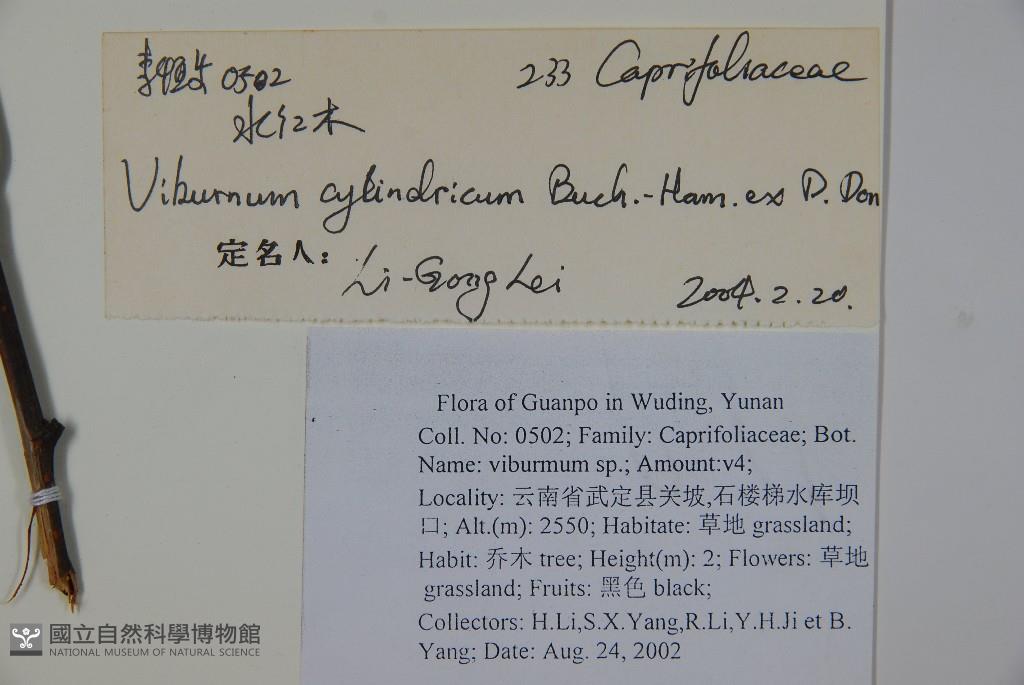 0502 233 Caprifoliaceae
水红木
Viburnum cylindricum Buch.-Ham. ex D. Don
定名人: Li-Gong Lei 2004.2.20.
Flora of Guanpo in Wuding, Yunan
Coll. No: 0502; Family: Caprifoliaceae; Bot.
Name: viburmum sp.; Amount:v4;
Locality: 云南省武定县关坡,石楼梯水库坝
口; Alt.(m): 2550; Habitate: 草地 grassland;
Habit: 乔木 tree; Height(m): 2; Flowers: 草地
grassland; Fruits: 黑色 black;
Collectors: H.Li,S.X.Yang,R.Li,Y.H.Ji et B.
Yang; Date: Aug. 24, 2002
國立自然科學博物館
NATIONAL MUSEUM OF NATURAL SCIENCE